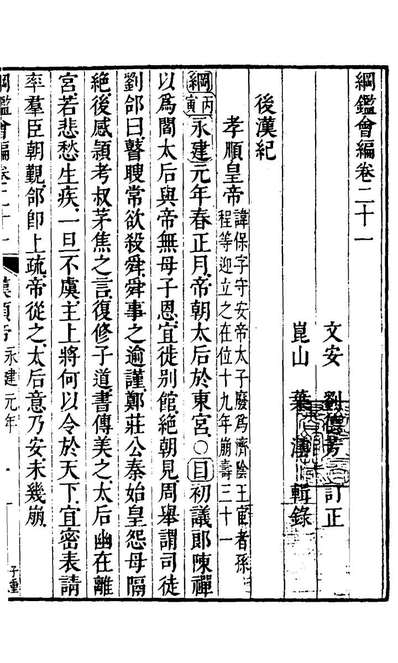 綱鑑會編卷二十一
文安 劉德芳 訂正
崑山 葉澐 輯錄
後漢紀
孝順皇帝
諱保字守安帝太子廢爲濟陰王宦者孫
程等迎立之在位十九年崩壽三十一
丙寅
綱
永建元年春正月帝朝太后於東宮○目初議郎陳禪
以爲閻太后與帝無母子恩宜徙別館絶朝見周舉謂司徒
劉郃曰瞽瞍常欲殺舜舜事之逾謹鄭莊公秦始皇怨母隔
絶後感潁考叔茅焦之言復修子道書傳美之太后幽在離
宮若悲愁生疾一旦不虞主上將何以令於天下宜密表請
率羣臣朝覲郃卽上疏帝從之太后意乃安未幾崩
綱鑑會編卷二十一
漢順帝 永建元年
一